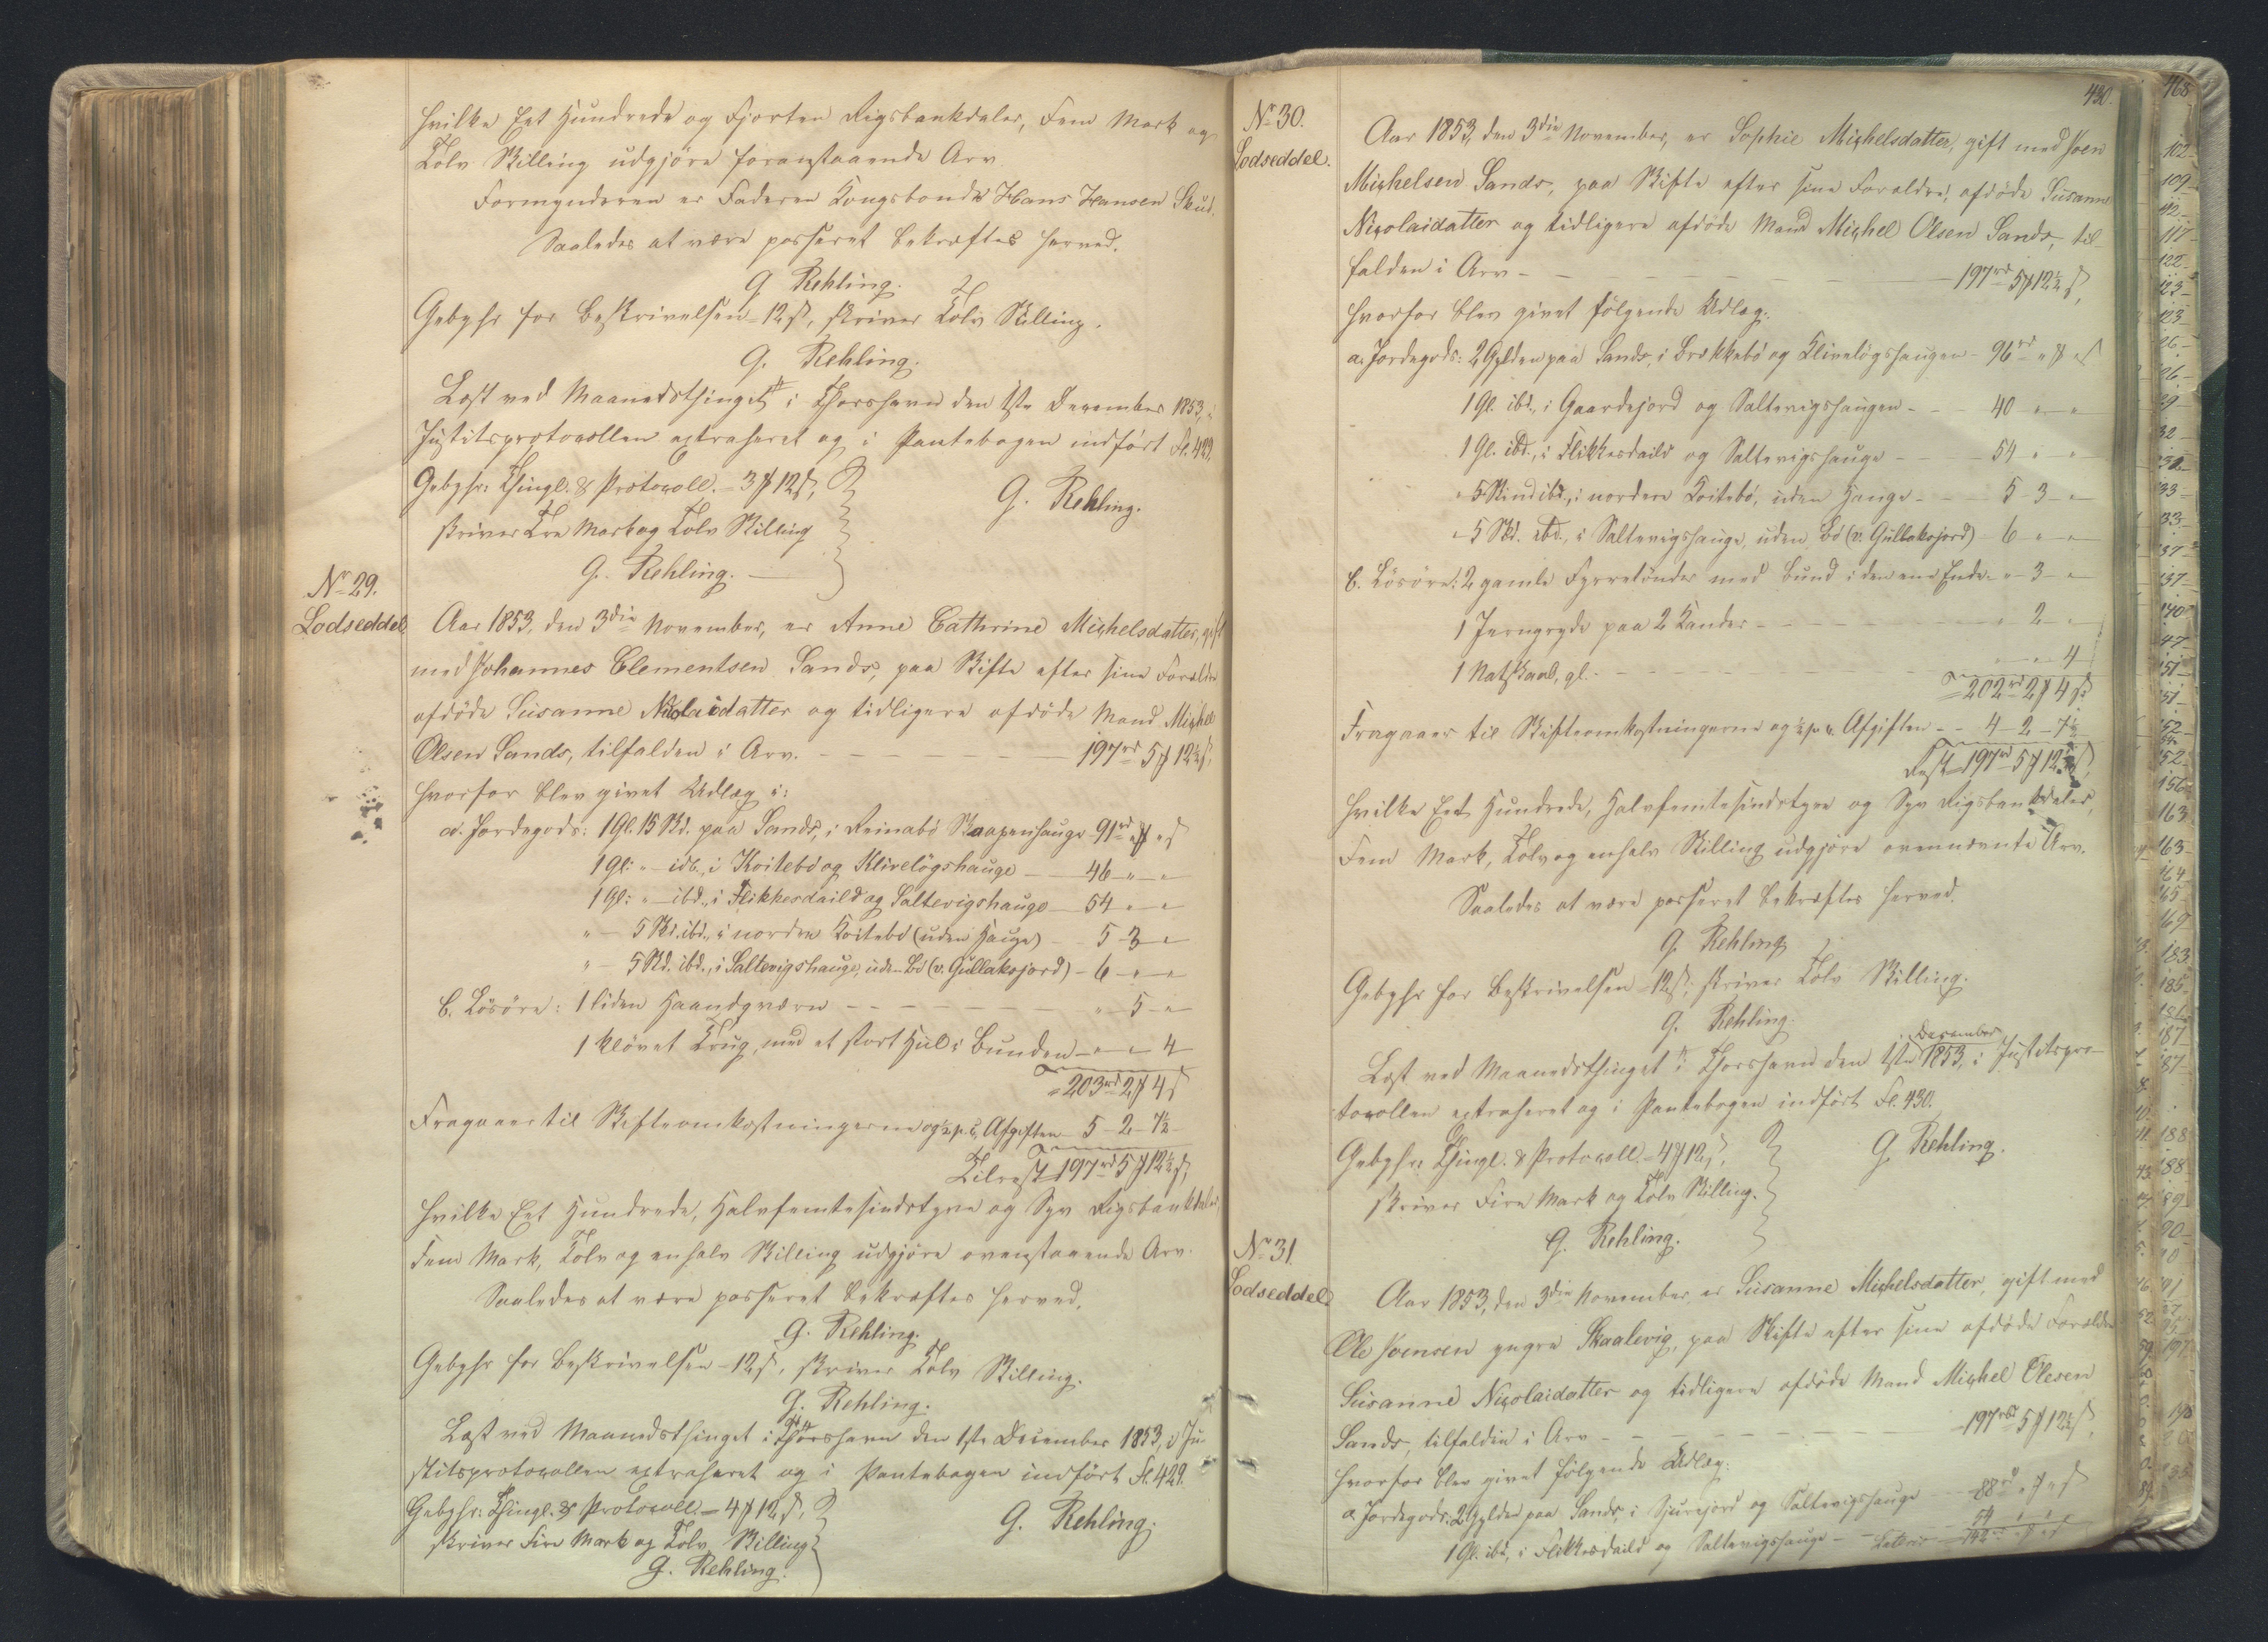 hvilke Eet Hundrede og Fjorten Rigsbankdaler, Fem Mark og
Tolv Skilling udgjøre foranstaaende Arv.
Formynderen er Faderen Kongsbonde Hans Hansen Skud.
Saaledes at være passeret bekræftes herved.
G Rehling.
Gebyhr for Beskrivelsen - 12 ß, skriver Tolv Skilling.
G. Rehling.
Læst ved Maanedsthinget i Thorshavn den 1ste December 1853, i
Justitsprotocollen extraheret og i Pantebogen indført Fl. 429.
Gebyhr: Thingl. & Protocoll. - 3 ₻ 12 ß,
skriver Tre Mark og Tolv Skilling
G. Rehling.
G. Rehling.
No 29.
Lodseddel.
Aar 1853, den 3die November, er Anne Cathrine Michelsdatter, gift
med Johannes Clementsen Sands, paa Skifte efter sine Forældre
afdøde Susanne Nicolaidatter og tidligere afdøde Mand Michel
Olsen Sands, tilfalden i Arv. - 197 rd 5 ₻ 12½ ß,
hvorfor blev givet Udlæg i:
a. Jordegods: 1 Gl. 15 Skd. paa Sands, i Reinabø Skaapenhauge 91 rd " ₻ " ß
1 Gl: " - idb., i Koitebø og Kliveløgshauge - 46 " "
1 Gl: " - ibd., i Flikkesdaild og Saltevigshauge - 54 " "
" - 5 Skd. ibd., i nordre Koitebø (uden Hauge) - 5 - 3 "
" - 5 Skd. ibd., i Saltevigshauge, uden Bø (v. Gullaksjord) - 6 " "
b. Løsøre: 1 liden Haandqværn - " - 5 - "
1 kløvet Krug, med et stort Hul i Bunden - " - " 4
= 203 rd 2 ₻ 4 ß
Fragaaer til Skifteomkostningerne og ½ p. c. Afgiften - 5 - 2 - 7½
Tilrest 197 rd 5 ₻ 12½ ß,
hvilke Eet Hundrede, Halvfemtesindstyve og Syv Rigsbankdaler,
Fem Mark, Tolv og en halv Skilling udgjøre ovenstaaende Arv.
Saaledes at være passeret bekræftes herved.
G. Rehling.
Gebyhr for Beskrivelsen - 12 ß, skriver Tolv Skilling.
G. Rehling.
Læst ved Maanedsthinget i Thorshavn den 1ste December 1853, i Ju-
stitsprotocollen extraheret og i Pantebogen indført Fl. 429.
Gebyhr: Thingl. & Protocoll. - 4 ₻ 12 ß,
skriver Fire Mark og Tolv Skilling
G. Rehling.
G. Rehling.
430.
No 30.
Lodseddel.
Aar 1853, den 3die November, er Sophie Michelsdatter, gift med Joen
Michelsen Sands, paa Skifte efter sine Forældre, afdøde Susanne
Nicolaidatter og tidligere afdøde Mand Michel Olsen Sands, til-
falden i Arv - 197 rd 5 ₻ 12½ ß,
hvorfor blev givet følgende Udlæg:
a. Jordegods: 2 Gylden paa Sands, i Brekkebø og Kliveløgshaugen - 96 rd " ₻ " ß
1 Gl. ibd., i Gaardejord og Saltevigshaugen - 40 " "
1 Gl. ibd., i Flikkesdaild og Saltevigshauge - 54 " "
" 5 Skind ibd., i nordere Koitebø, uden Hauge - 5 3 "
" 5 Skd. ibd., i Saltevigshauge, uden Bø (v. Gullaksjord) - 6 " "
b. Løsøre: 2 gamle Fyrretønder med Bund i den ene Ende - " - 3 - "
1 Jerngryde paa 2 Kander - " 2 "
1 Natskaal, gl. - " " 4
= 202 rd 2 ₻ 4 ß
Fragaaer til Skifteomkostningerne og ½ p. c. Afgiften - 4 - 2 - 7½
Rest 197 rd 5 ₻ 12½ ß,
hvilke Eet Hundrede, Halvfemtesindstyve og Syv Rigsbankdaler,
Fem Mark, Tolv og en halv Skilling udgjøre ovennævnte Arv.
Saaledes at være passeret bekræftes herved.
G. Rehling
Gebyhr for Beskrivelsen - 12 ß, skriver Tolv Skilling.
G. Rehling.
Læst ved Maanedsthinget i Thorshavn den 1ste December 1853, i Justitspro-
tocollen extraheret og i Pantebogen indført Fl. 430.
Gebyhr: Thingl. & Protocoll. - 4 ₻ 12 ß,
skriver Fire Mark og Tolv Skilling.
G. Rehling.
G. Rehling.
No 31.
Lodseddel.
Aar 1853, den 3die November, er Susanne Michelsdatter, gift med
Ole Joensen yngre Skaalevig, paa Skifte efter sine afdøde Forældre
Susanne Nicolaidatter og tidligere afdøde Mand Michel Olesen
Sands, tilfalden i Arv - 197 rbd 5 ₻ 12½ ß,
hvorfor blev givet følgende Udlæg:
a. Jordegods: 2 Gylden paa Sands, i Sjurejord og Saltevigshauge - 88 rd " ₻ " ß
1 Gl. ibd., i Flikkesdaild og Saltevigshauge - 54 " "
Lateris 142 rd " ₻ " ß